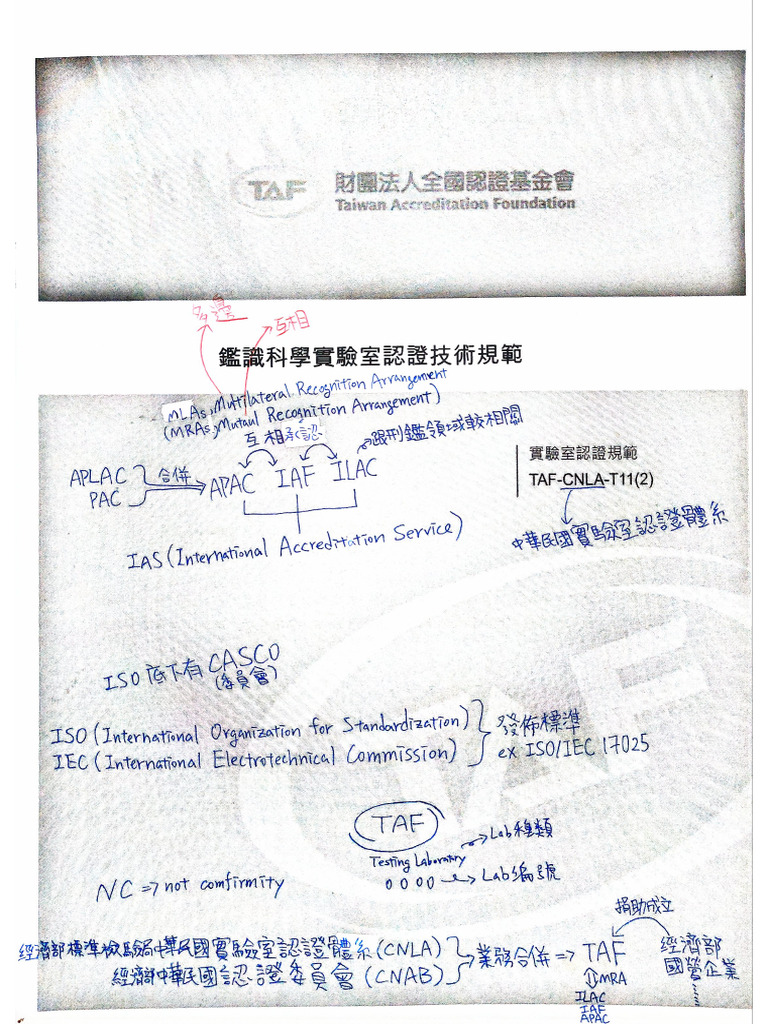 TAF 財團法人全國認證基金會
Taiwan Accreditation Foundation
多邊
互相
鑑識科學實驗室認證技術規範
MLAs, Multilateral Recognition Arrangement
(MRAs, Mutaul Recognition Arrangement)
互相承認
跟刑鑑領域較相關
APLAC
PAC
合併
APAC IAF ILAC
實驗室認證規範
TAF-CNLA-T11(2)
中華民國實驗室認證體系
IAS (International Accreditation Service)
ISO 底下有 CASCO
(委員會)
ISO (International Organization for Standardization)
IEC (International Electrotechnical Commission)
發佈標準
ex ISO/IEC 17025
TAF
Testing Laboratory
Lab種類
0000
Lab編號
NC => not comfirmity
捐助成立
經濟部標準檢驗局中華民國實驗室認證體系(CNLA)
經濟部中華民國認證委員會(CNAB)
業務合併 => TAF
經濟部
國營企業
MRA
ILAC
IAF
APAC
TAF